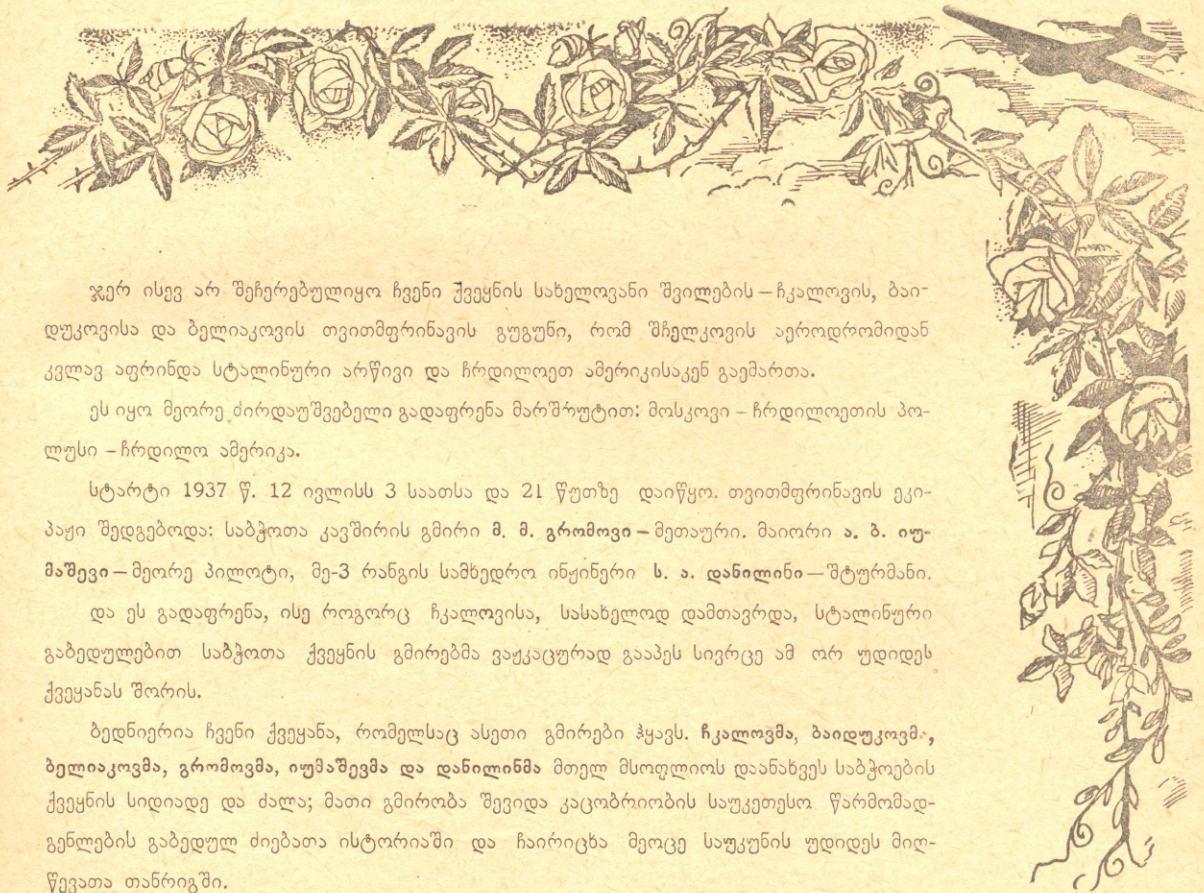 ჯერ ისევ არ შეჩერებულიყო ჩვენი ქვეყნის სახელოვანი შვილების – ჩკალოვის, ბაი-
დუკოვისა და ბელიაკოვის თვითმფრინავის გუგუნი, რომ შჩელკოვის აეროდრომიდან
კვლავ აფრინდა სტალინური არწივი და ჩრდილოეთ ამერიკისაკენ გაემართა.
ეს იყო მეორე ძირდაუშვებელი გადაფრენა მარშრუტით: მოსკოვი – ჩრდილოეთის პო-
ლუსი – ჩრდილო ამერიკა.
სტარტი 1937 წ. 12 ივლისს 3 საათსა და 21 წუთზე დაიწყო. თვითმფრინავის ეკი-
პაჟი შედგებოდა: საბჭოთა კავშირის გმირი მ. მ. გრომოვი – მეთაური. მაიორი ა. ბ. იუ-
მაშევი – მეორე პილოტი, მე-3 რანგის სამხედრო ინჟინერი ს. ა. დანილინი — შტურმანი.
და ეს გადაფრენა, ისე როგორც ჩკალოვისა, სასახელოდ დამთავრდა, სტალინური
გაბედულებით საბჭოთა ქვეყნის გმირებმა ვაჟკაცურად გააპეს სივრცე ამ ორ უდიდეს
ქვეყანას შორის.
ბედნიერია ჩვენი ქვეყანა, რომელსაც ასეთი გმირები ჰყავს. ჩკალოვმა, ბაიდუკოვმა,
ბელიაკოვმა, გრომოვმა, იუმაშევმა და დანილინმა მთელ მსოფლიოს დაანახვეს საბჭოების
ქვეყნის სიდიადე და ძალა; მათი გმირობა შევიდა კაცობრიობის საუკეთესო წარმომად-
გენლების გაბედულ ძიებათა ისტორიაში და ჩაირიცხა მეოცე საუკუნის უდიდეს მიღ-
წევათა თანრიგში.